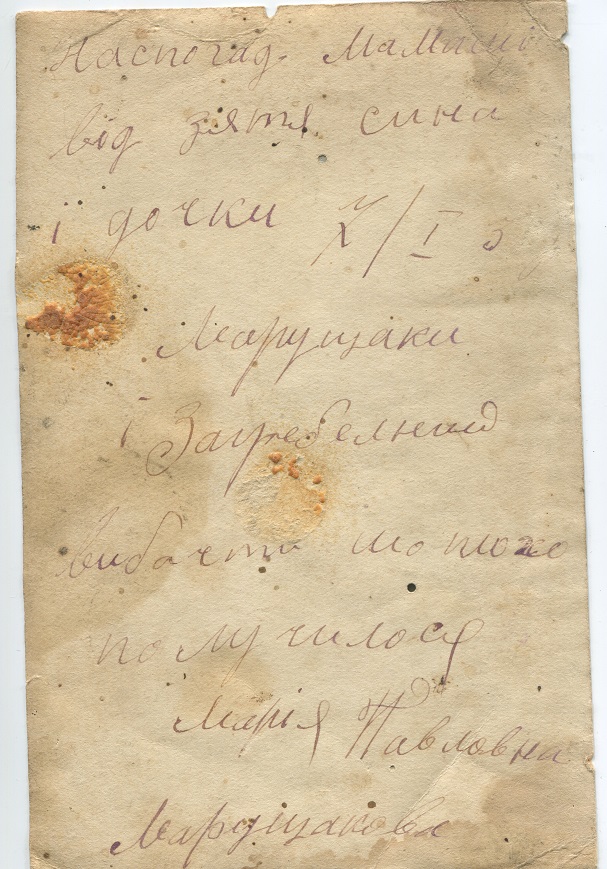 Наспогад Мамаши
від зятя сина
і дочки X/I 3
Марущаки
і Загребельний
вибачти що плохо
получилося
Марія Павловна
Марущакова